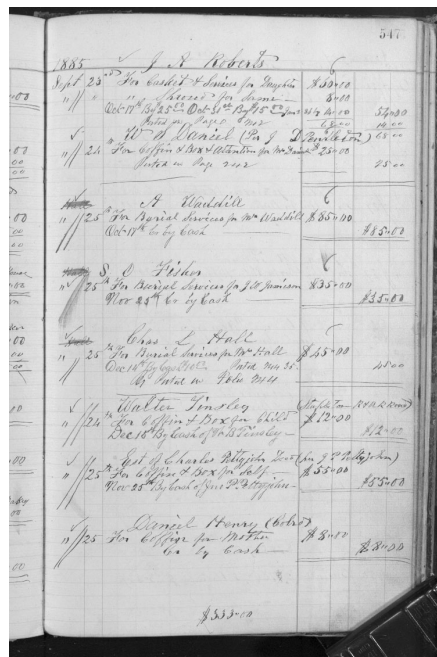 547
1885 J A Roberts
Sept 23rd For Casket & Services for Daughter $50.00
" " " Shroud for Same 8.00
Oct 17th By 25.00 Oct 31st By $15.00
Posted on Page 242
W B Daniel (Per J D Pendleton)
" 24 For Coffin & Box & Attention for Mr Daniel $25.00
Posted on Page 242 25.00
A Waddill
" 25th For Burial Services for Mr Waddill $85.00
Oct 17th Cr by Cash $85.00
S C Fisher
" 25th For Burial Services for J W Jamison $35.00
Nov 25th Cr by Cash $35.00
Chas L Hall
" 25th For Burial Services for Mr Hall $45.00
Dec 14th By 45.00
Posted on Folio 244
Walter Tinsley
" 24th For Coffin & Box for Child $12.00
Dec 15th By Cash of Tinsley $12.00
Est of Charles Pettyjohn Decd (Per J P Pettyjohn)
" 25th For Coffin & Box for Self $55.00
Nov 25th By Cash of Jno P Pettyjohn $55.00
Daniel Henry (Cold)
" 25 For Coffin for Mother $8.00
Cr by Cash $8.00
$333.00